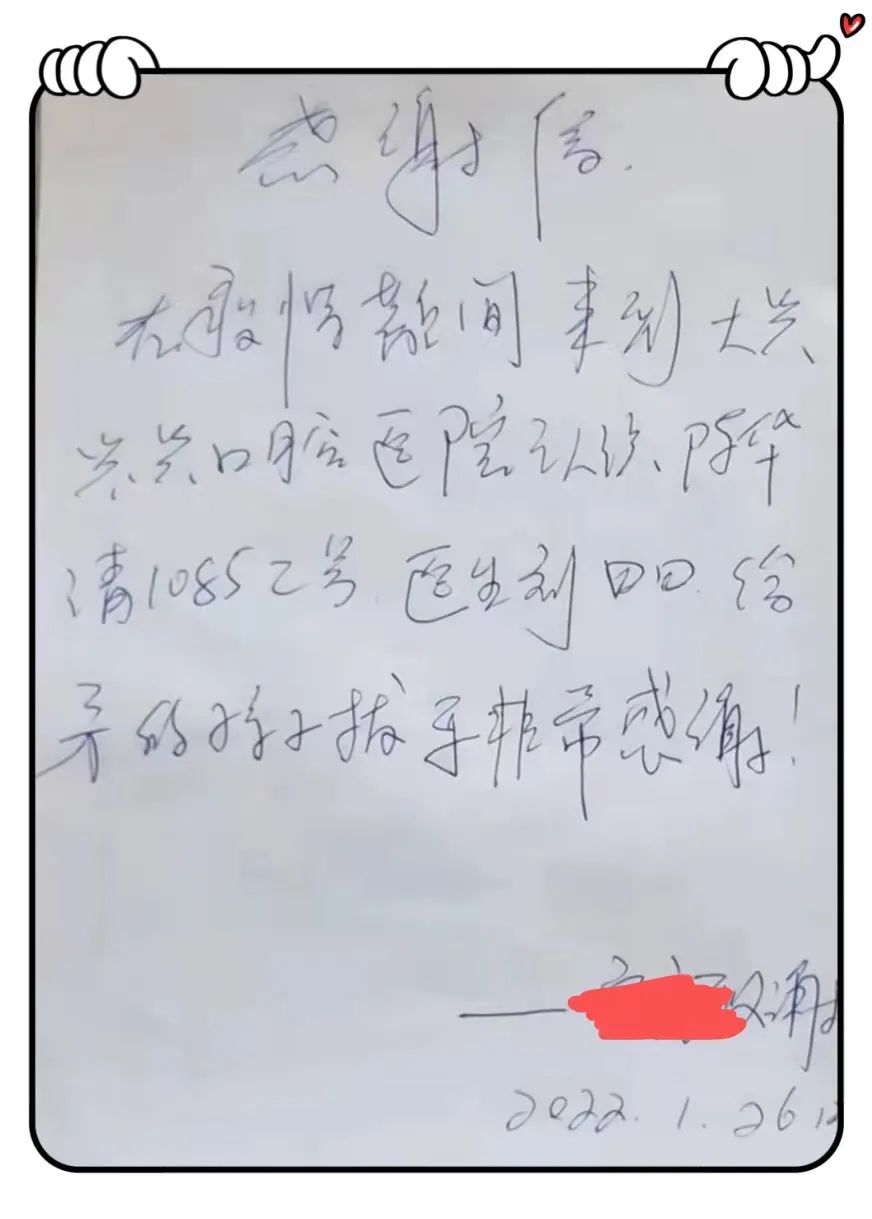 感谢信.
在疫情期间来到大兴
兴兴口腔医院认诊、陈华
清10852号.医生刘田田.给
牙的孩子拔牙非常感谢!
——致谢
2022.1.26